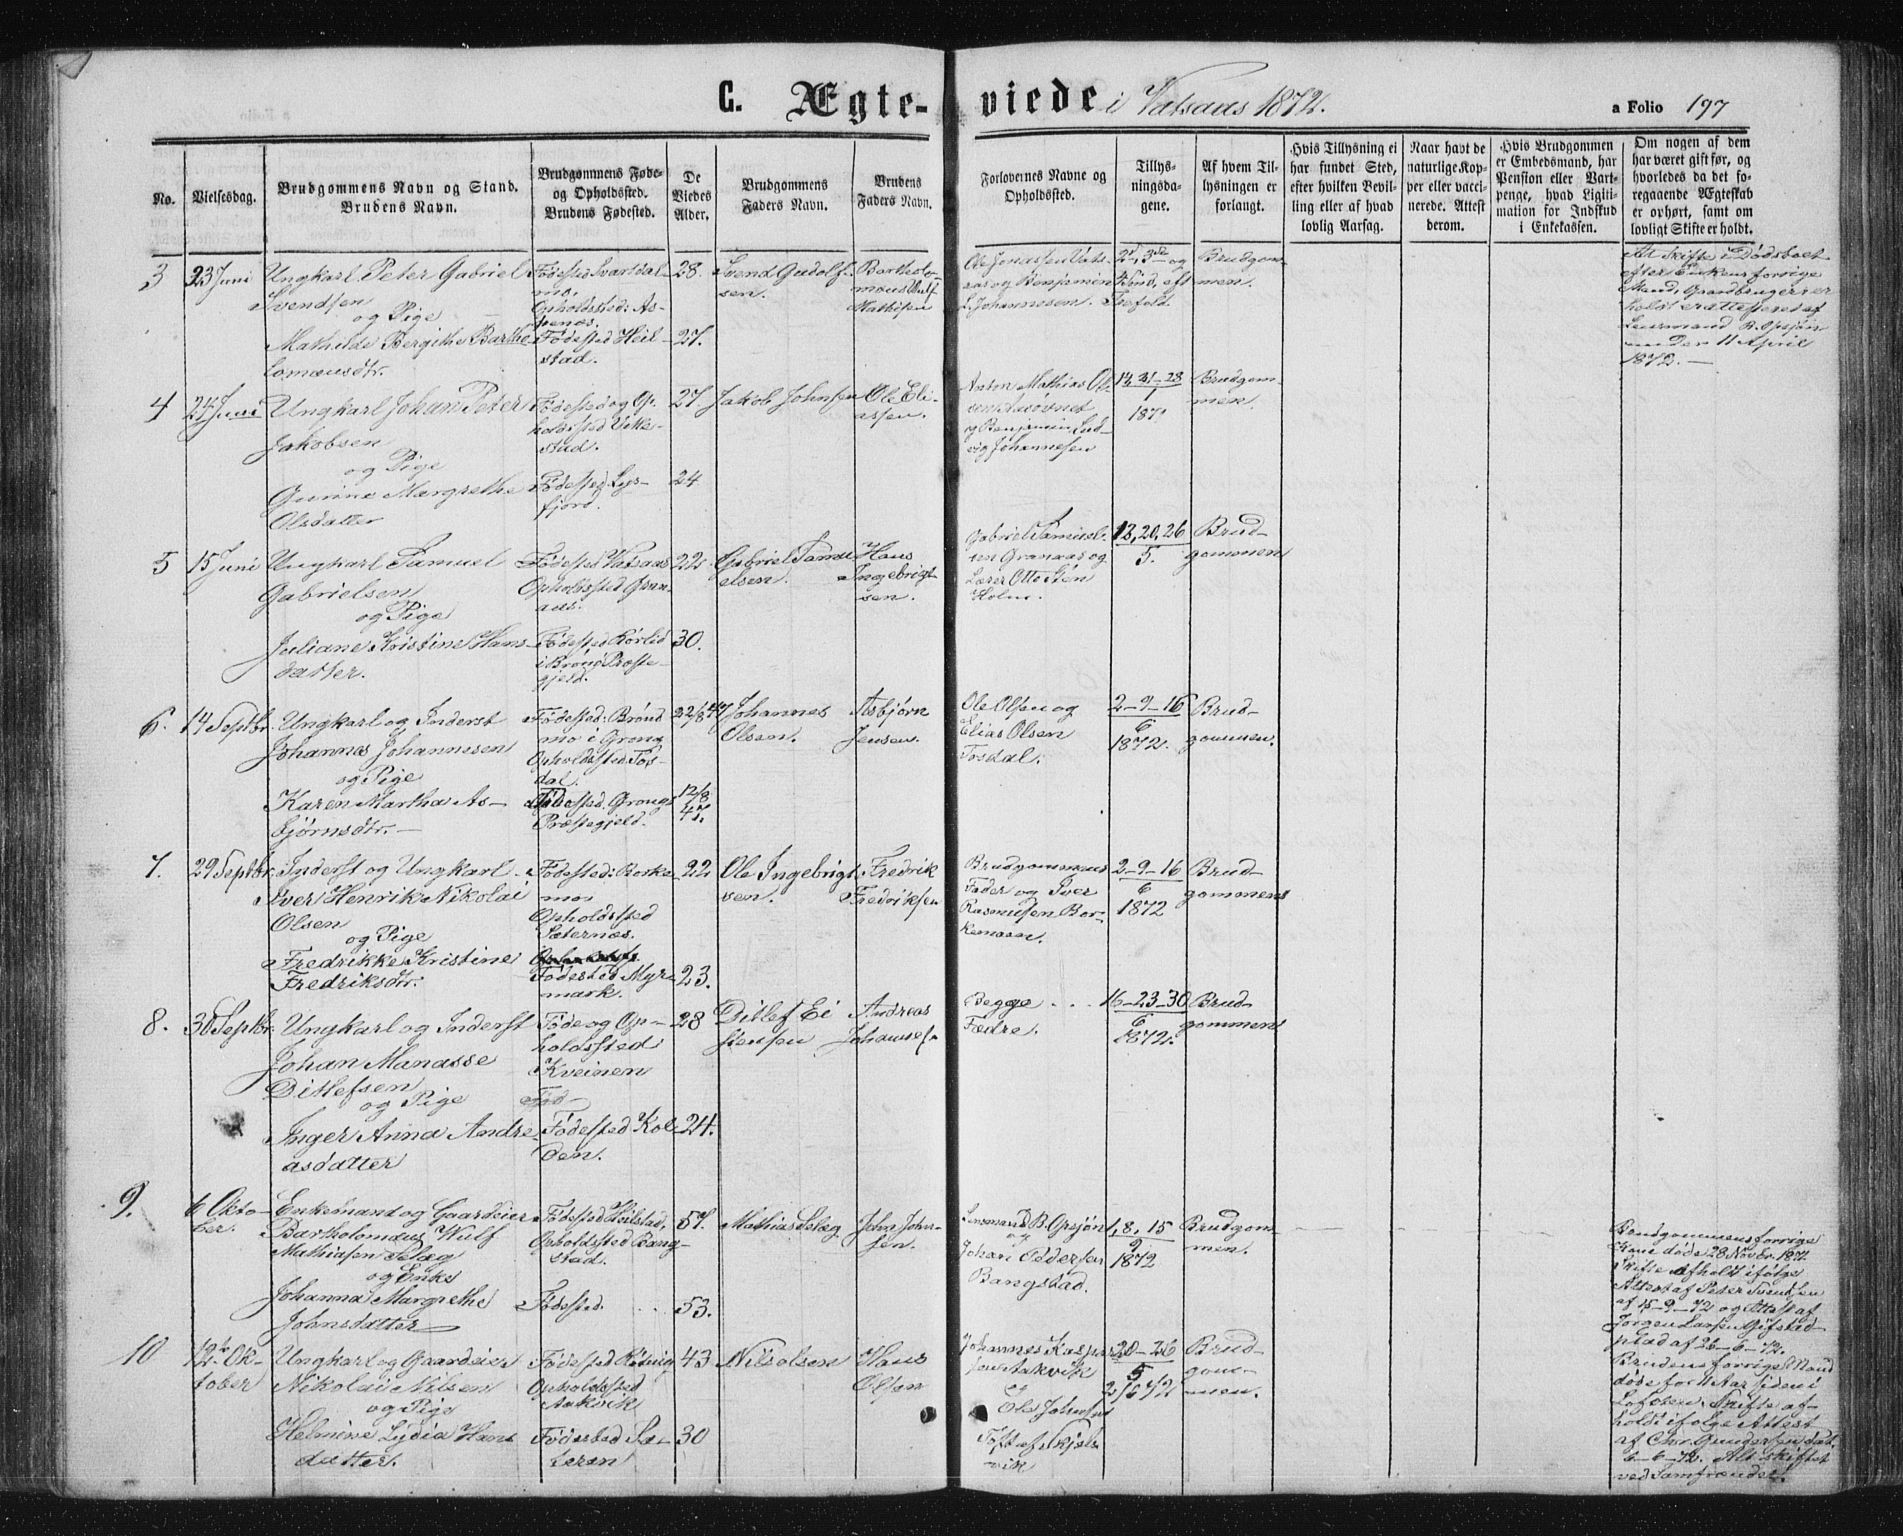 C. Ægte-viede i Vatsaas 1872.
a Folio 197
No.
Vielsesdag.
Brudgommens Navn og Stand.
Brudens Navn.
Brudgommens Føde-
og Opholdssted.
Brudens Fødested.
De
Viedes
Alder.
Brudgommens
Faders Navn.
Brudens
Faders Navn.
Forlovernes Navne og
Opholdssted.
Tillys-
ningsda-
gene.
Af hvem Til-
lysningen er
forlangt.
Hvis Tillysning ei
har fundet Sted,
efter hvilken Bevil-
ling eller af hvad
lovlig Aarsag.
Naar havt de
naturlige Kop-
per eller vacci-
nerede. Attest
derom.
Hvis Brudgommen
er Embedsmand, har
Pension eller Vart-
penge, hvad Ligiti-
mation for Indskud
i Enkekassen.
Om nogen af dem
har været gift før, og
hvorledes da det fo-
regaaende Ægteskab
er ophørt, samt om
lovligt Skifte er holdt.
3
23 Juni
Ungkarl Peter Gabriel
Svendsen
og Pige
Mathilde Bergithe Bartho
lomæusdtr.
Fødested Svartdal
mo.
Opholdssted: As-
penæs.
Fødested Heil
stad.
28.
27.
Svend Gudolf
sen.
Bartholo-
mæus Wulf
Mathisen
Ole Jonassen Vats-
aas og Benjamin
L. Johannesen.
2d, 3de og
4 Sønd. eft
Trefold.
Brudgom-
men.
At Skifte i Dødsboet
efter Enkens forrige
Mand, er
holdt er attesteret af
Lensmand B. Opsjøn
under 11 April
1872.
4
24 Juni
Ungkarl Johan Peter
Jakobsen
og Pige
Gurine Margrethe
Olsdatter
Fødested og Op-
holdssted Vikke-
stad.
Fødested Lys-
fjord.
27
24
Jakob Johnsen
Ole Eli-
assen.
Anton Mathias Ol
sen
og Benjamin Lud-
vig Johannesen
14, 21-28
1
187
Brudgom-
men.
5
15 Juni
Ungkarl Samuel
Gabrielsen
og Pige
Juliane Kristine Hans
datter.
Fødested Vatsaas
Opholdssted Gran-
aas.
Fødested Hørlid
i Brønø Præste-
gjeld.
22.
30.
Gabriel Samu
elsen.
Hans
Ingebrigt
sen.
Gabriel Samuel-
sen Granaas og
Lærer Otto Stén
Holm.
13, 20, 26
5.
Brud-
gommen
6.
14 Septbr.
Ungkarl og Inderst
Johannes Johannesen
og Pige
Karen Martha As-
bjørnsdtr.
Fødested: Brønd
mo i Grong
Opholdssted Fos-
dal.
Fødested. Grongs
Præstegjeld.
22/8 47
12/8
47.
Johannes
Olsen.
Asbjørn
Jensen.
Ole Olsen og
Elias Olsen
Fosdal.
2-9-16
6
1872.
Brud-
gommen.
7.
29 Septbr.
Inderst og Ungkarl
Iver Henrik Nikolai
Olsen
og Pige
Fredrikke Kristine
Fredriksdtr.
Fødested: Borke-
mo.
Opholdssted
Sæternæs.
Fødested Myr-
mark.
22
23.
Ole Ingebrigt
sen.
Fredrik
Fredriksen
Brudgommens
Fader og Iver
Rasmussen Bor-
kemoen.
2-9-16
6
1872
Brud-
gommens
8.
30 Septbr.
Ungkarl og Inderst
Johan Manasse
Ditlefsen
og Pige
Inger Anna Andre
asdatter
Føde og Op-
holdssted
Kveinen
Fød
Fødested Kol-
den.
28
24.
Ditlef Ei
stensen
Andreas
Johansen
Begge . . .
Fædre.
16-23-30
6
1872.
Brud-
gommens
9.
6 Okto-
ber.
Enkemand og Gaardeier
Bartholomæus Wulf
Mathiasen Selæg
og Enke
Johanna Margrethe
Johnsdatter
Fødested Heilstad,
Opholdssted Bang-
stad.
Fødested. . .
57.
53.
Mathias Selæg
John John-
sen.
Lensmand B. Opsjøn
og
Johan Peddersen
Bangstad.
1, 8, 15
9
1872
Brudgom-
men.
Brudgommens forrige
Kone døde 28 Novbr. 1871.
Skifte afholdt ifølge
Attest af Peter Svendsen
af 15-9-72 og Attest af
Jørgen Larsen
af 26-6-72.
Brudens forrige Mand
døde for 11 Aar siden i
Lofoten. Skifte af-
holdt ifølge Attest
af Chr. Gundersen
6-6-72. Alt skiftet
ved Samfrænder.
10
12te Ok-
tober
Ungkarl og Gaardeier
Nikolai Nilsen
og Pige
Helmine Lydia Hans
datter.
Fødested
Opholdssted
Aakvik
Fødested Sæ-
teren
43
30
Nils Olsen
Hans
Olsen
Johannes Kasper
sen Aakvik
og
Ole Johnsen
Toft af Skjels-
vik
20-26
5
2/6 72
Brud-
gom-
men.